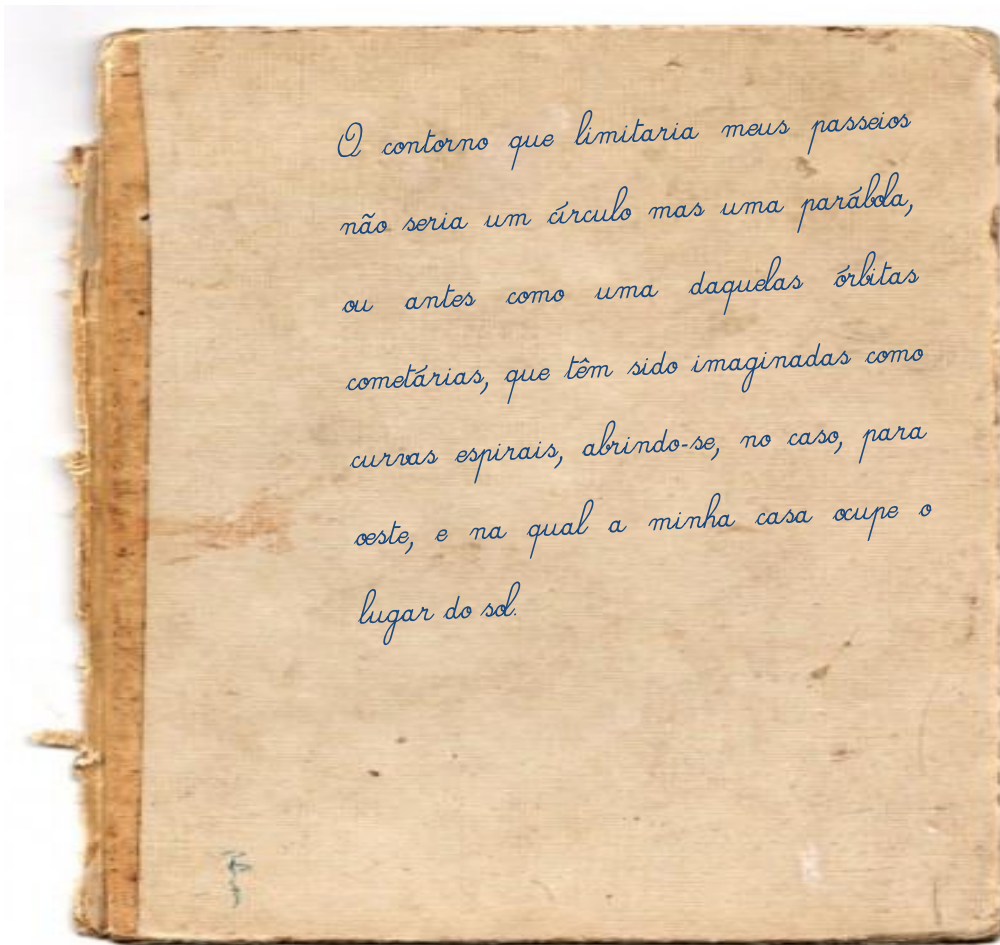 O contorno que limitaria meus passeios
não seria um círculo mas uma parábola,
ou antes como uma daquelas órbitas
cometárias, que têm sido imaginadas como
curvas espirais, abrindo-se, no caso, para
oeste, e na qual a minha casa ocupe o
lugar do sol.